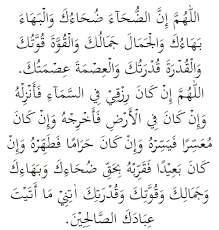 اَللّٰهُمَّ اِنَّ الضُّحَآءَ ضُحَاءُكَ وَالْبَهَاءَ
بَهَاءُكَ وَالْجَمَالَ جَمَالُكَ وَالْقُوَّةَ قُوَّتُكَ
وَالْقُدْرَةَ قُدْرَتُكَ وَالْعِصْمَةَ عِصْمَتُكَ.
اَللّٰهُمَّ اِنْ كَانَ رِزْقِيْ فِي السَّمَآءِ فَأَنْزِلْهُ
وَاِنْ كَانَ فِي الْأَرْضِ فَأَخْرِجْهُ وَاِنْ كَانَ
مُعَسِّرًا فَيَسِّرْهُ وَاِنْ كَانَ حَرَامًا فَطَهِّرْهُ وَاِنْ
كَانَ بَعِيْدًا فَقَرِّبْهُ بِحَقِّ ضُحَاءِكَ وَبَهَاءِكَ
وَجَمَالِكَ وَقُوَّتِكَ وَقُدْرَتِكَ اٰتِنِيْ مَا أَتَيْتَ
عِبَادَكَ الصَّالِحِيْنَ.